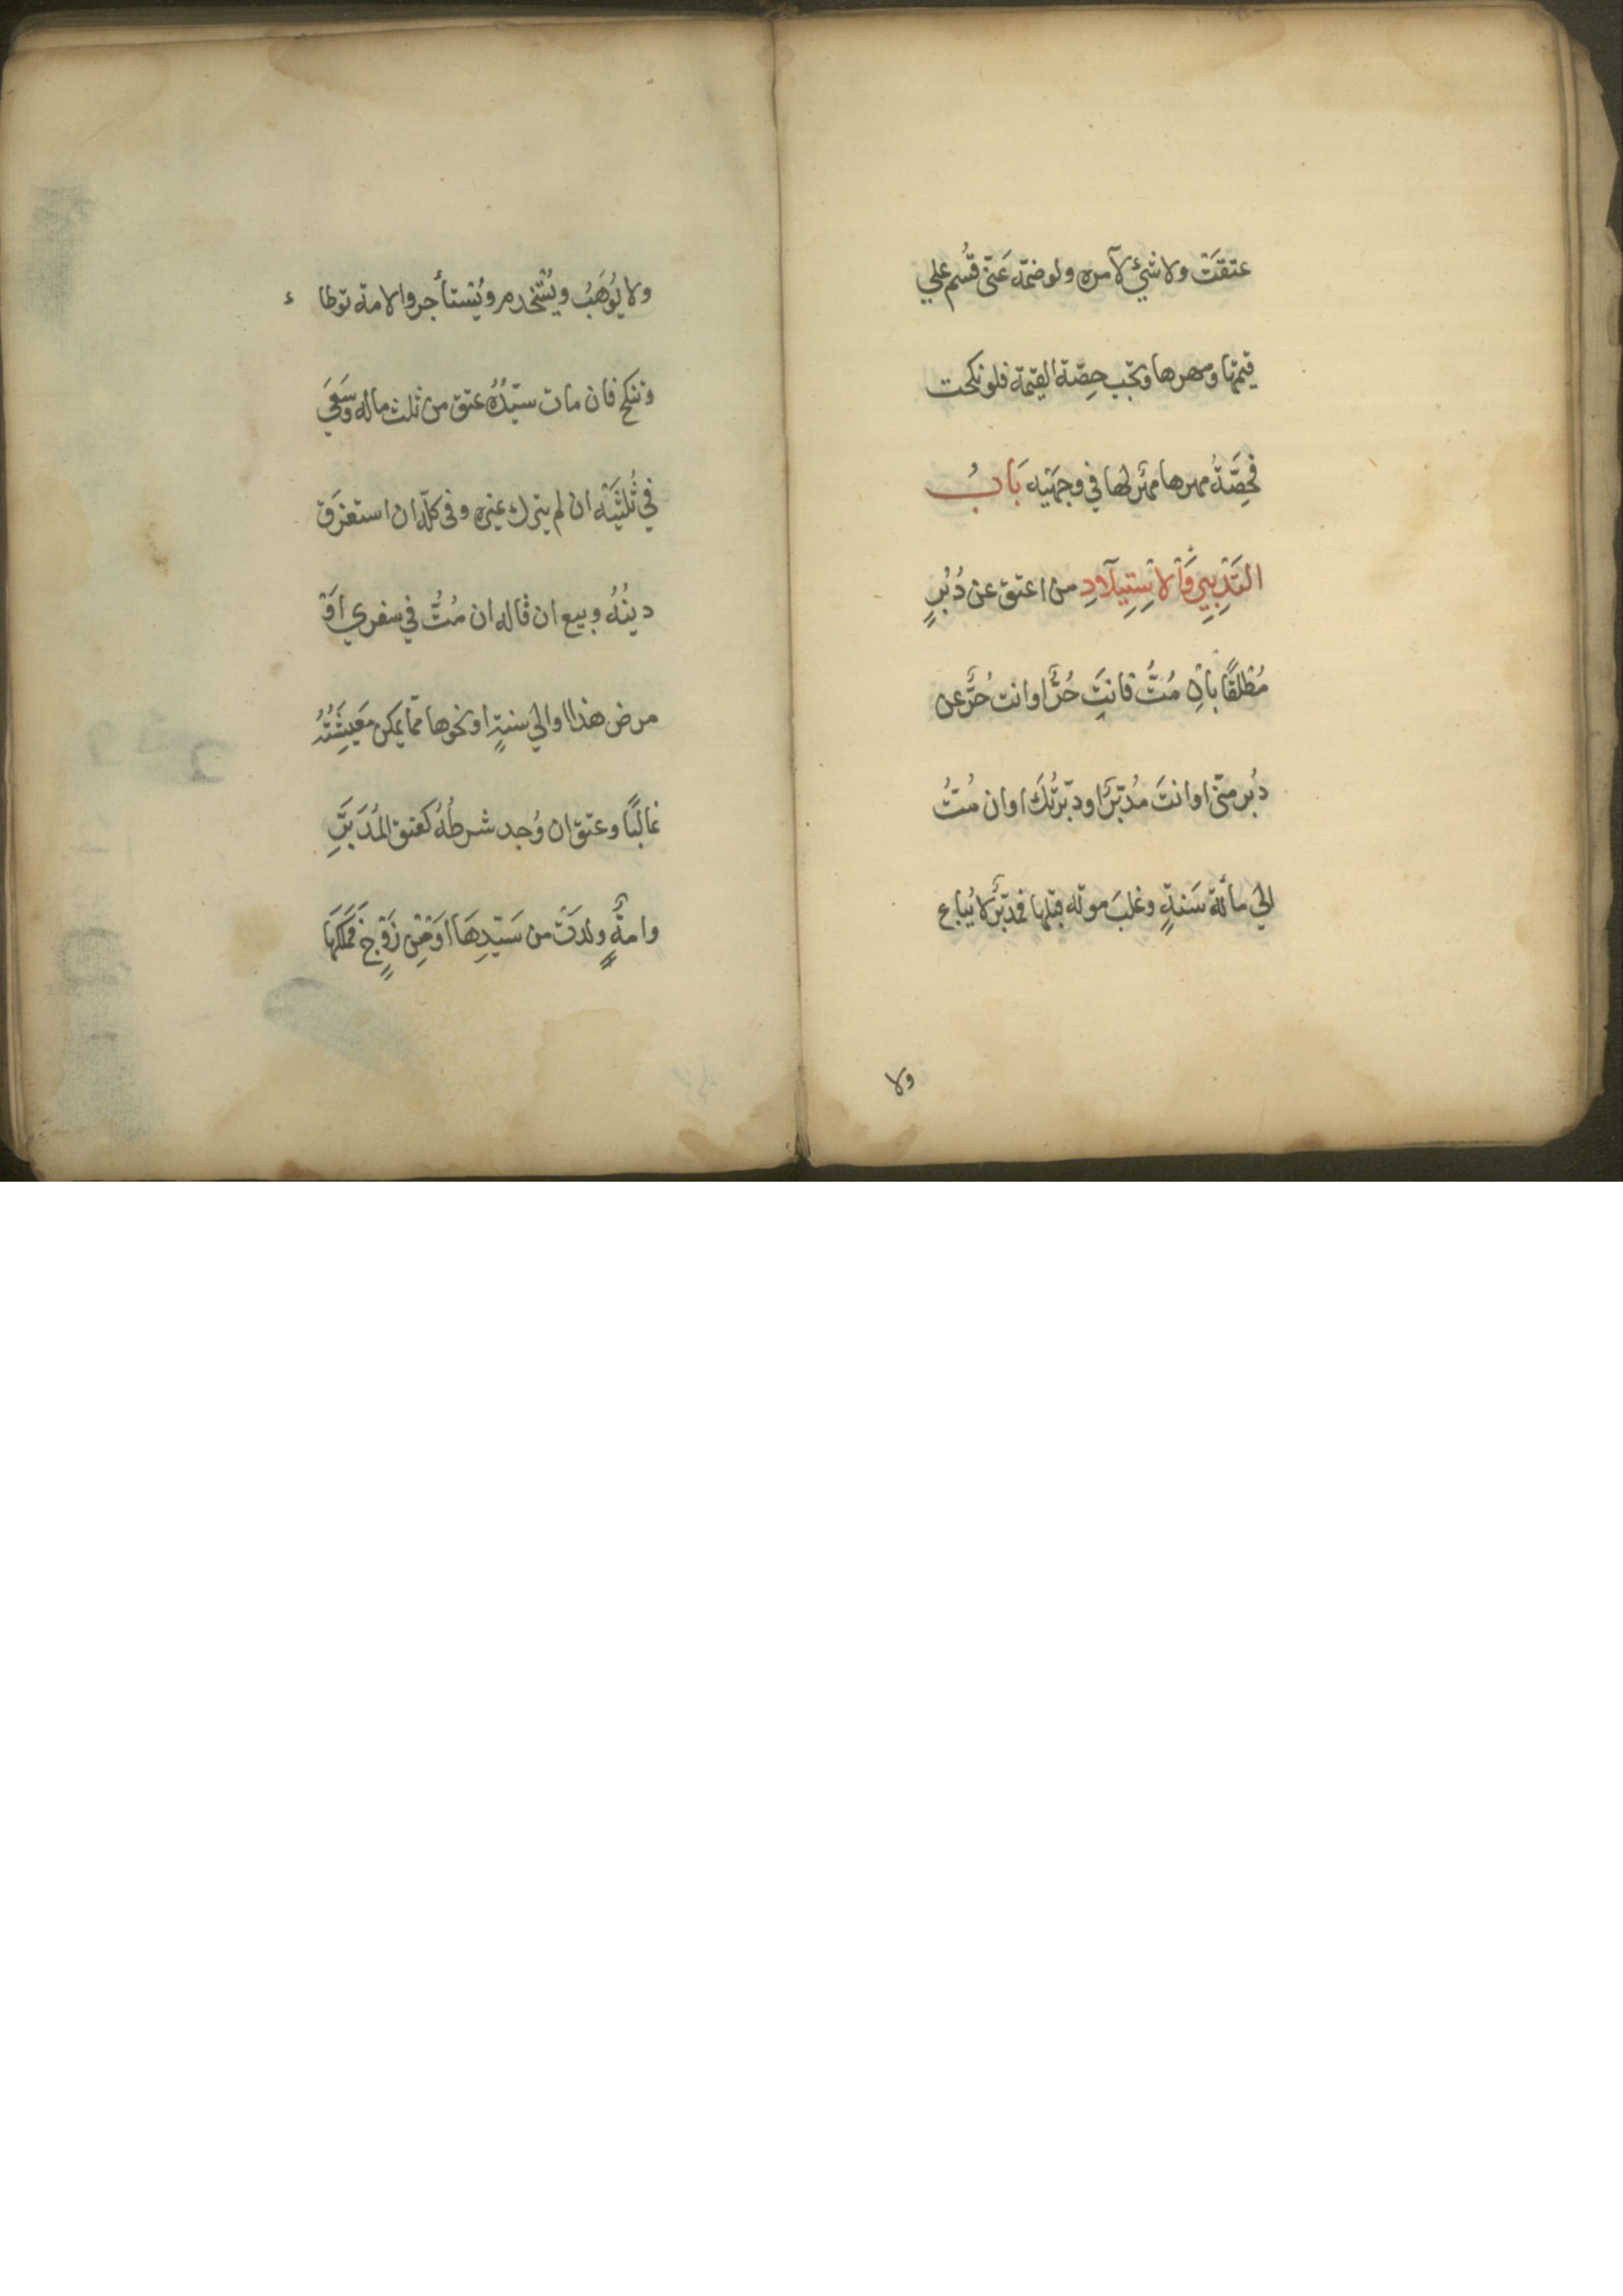 عتقَتْ ولا شيْءَ لآمره ولو ضمّه عَنّى قُسم علي
قيمتها ومهرها وتجب حِصّة القيمة فلو نكحت
فحِصَّةُ مهرها مهرٌ لها في وجهَيْه بَابُ
التَدْبِيرِ وَالْاِسْتِيلَادِ من اعتق عن دُبُرٍ
مُطْلَقًا بِاِنْ مُتُّ فانتَ حُرٌّ او انت حُرٌّ عن
دُبُر منّى او انتَ مُدبّرٌ او دبّرتُكَ او ان مُتُّ
الي مأئة سَنةٍ وغلبَ موته قبلها فمدبّرٌ لا يُباع
ولا
ولا يُوْهَبُ ويُسْتخدم ويُسْتأجر والامة توطاء
وتنكح فان مات سيّدُهُ عتق من ثلث ماله وسَعَي
في ثُلثَيْه ان لم يترك غيره وفى كلّه ان استغرَق
دينُهُ وبيع ان قاله ان مُتُّ في سفري اَوْ
مرض هذا او الي سنةٍ او نحوها ممّا يمكن مَعِيشَتُهُ
غالبًا وعتق ان وُجد شرطُهُ كعتق المُدَبَّرِ
وامةٌ ولدَتْ من سَيّدِهَا اَوْ مِنْ زَوْجٍ فَمَلَكَهَا